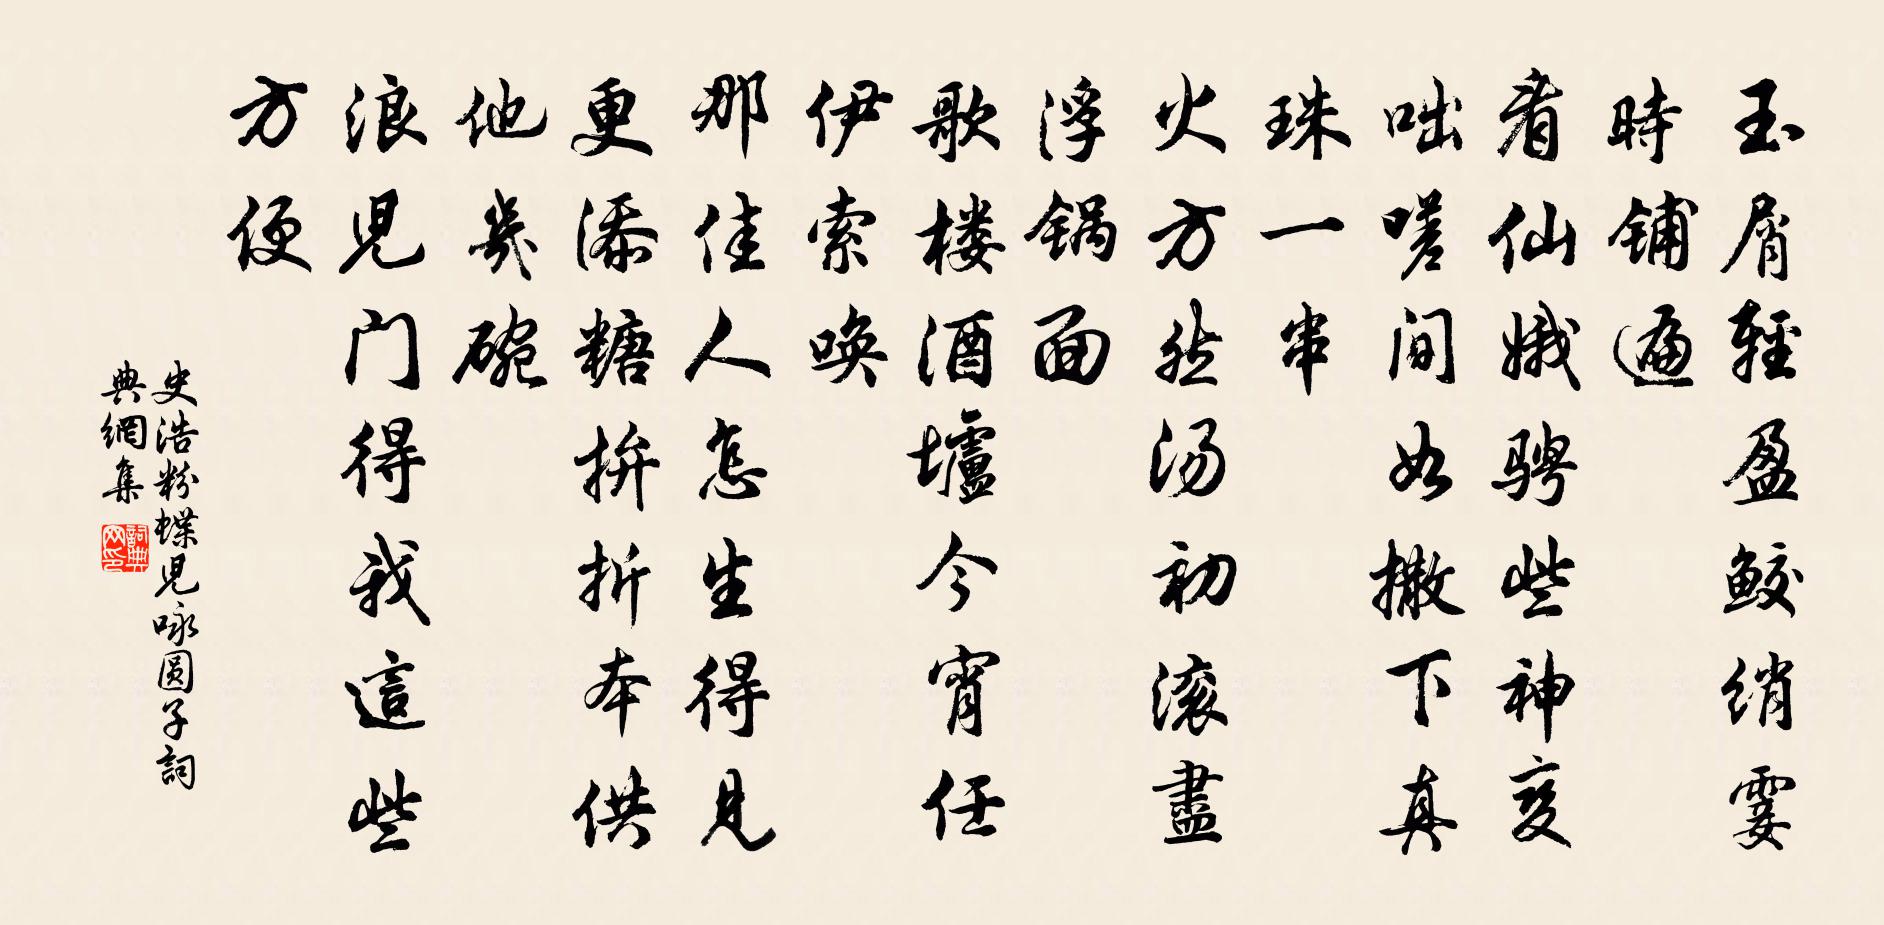 玉屑輕盈鮫綃霎
時铺遍
看仙娥骋些神变
咄嗟间如撒下真
珠一串
火方然汤初滚盡
浮锅面
歌楼酒壚今宵任
伊索唤
那佳人怎生得见
更添糖拚折本供
他幾碗
浪儿门得我這些
方便
史浩粉蝶儿咏圆子詞
典網集
詞典
网印